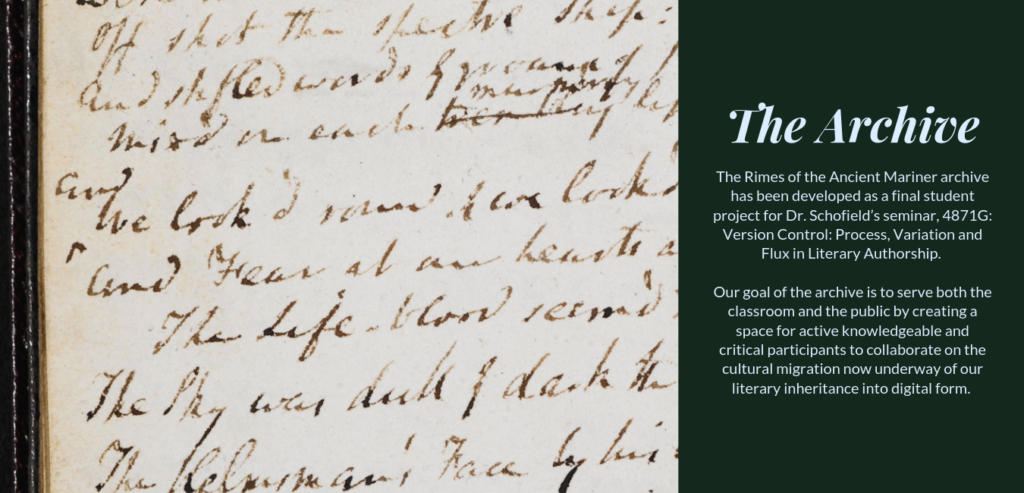 Off shot the spectre ship:
and stifled words & groans of
murmur'd
mix'd on each trembling lip
and
We look'd round & we look'd
and Fear at our hearts a
The Life-blood seem'd
The Sky was dull & dark the
The Helmsman's Face by his
The Archive
The Rimes of the Ancient Mariner archive
has been developed as a final student
project for Dr. Schofield’s seminar, 4871G:
Version Control: Process, Variation and
Flux in Literary Authorship.
Our goal of the archive is to serve both the
classroom and the public by creating a
space for active knowledgeable and
critical participants to collaborate on the
cultural migration now underway of our
literary inheritance into digital form.